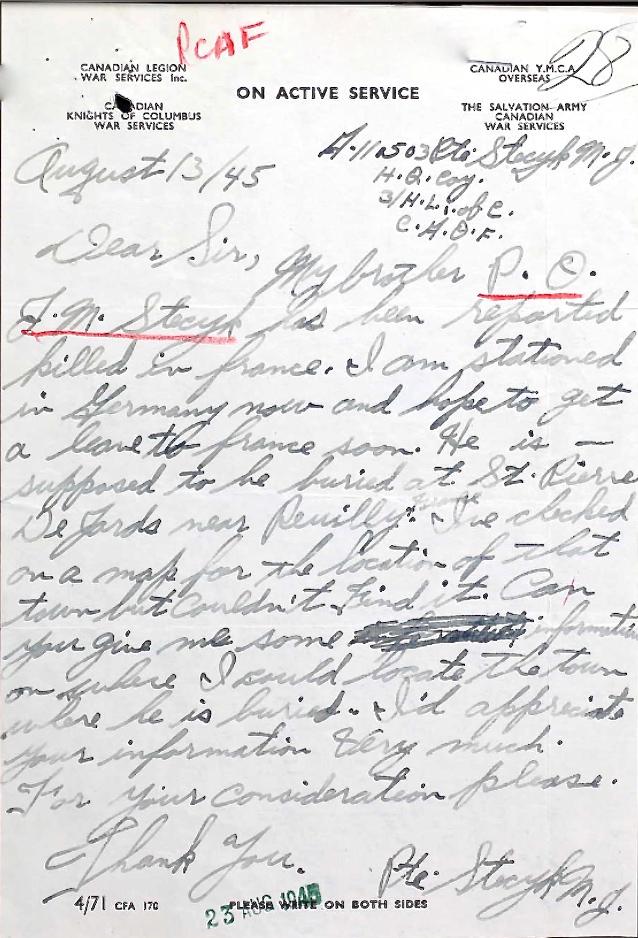 RCAF
28
CANADIAN LEGION
WAR SERVICES Inc.
CANADIAN
KNIGHTS OF COLUMBUS
WAR SERVICES
ON ACTIVE SERVICE
CANADIAN Y.M.C.A.
OVERSEAS
THE SALVATION ARMY
CANADIAN
WAR SERVICES
Pte. Stecyk M. J.
H.Q. Coy.
3/H.L.I. of C.
C.A.O.F.
August 13/45
Dear Sir, My brother P. O.
F. M. Stecyk has been reported
killed in france. I am stationed
in Germany now and hope to get
a leave to france soon. He is —
supposed to be buried at St. Pierre
De Jards near Reuilly. france I've checked
on a map for the location of that
town but couldn't find it. Can
you give me some information
on where I could locate the town
where he is buried. I'd appreciate
your information Very much.
For your consideration please.
Thank You.
Pte. Stecyk M. J.
4/71 CFA 170
PLEASE WRITE ON BOTH SIDES
23 AUG 1945